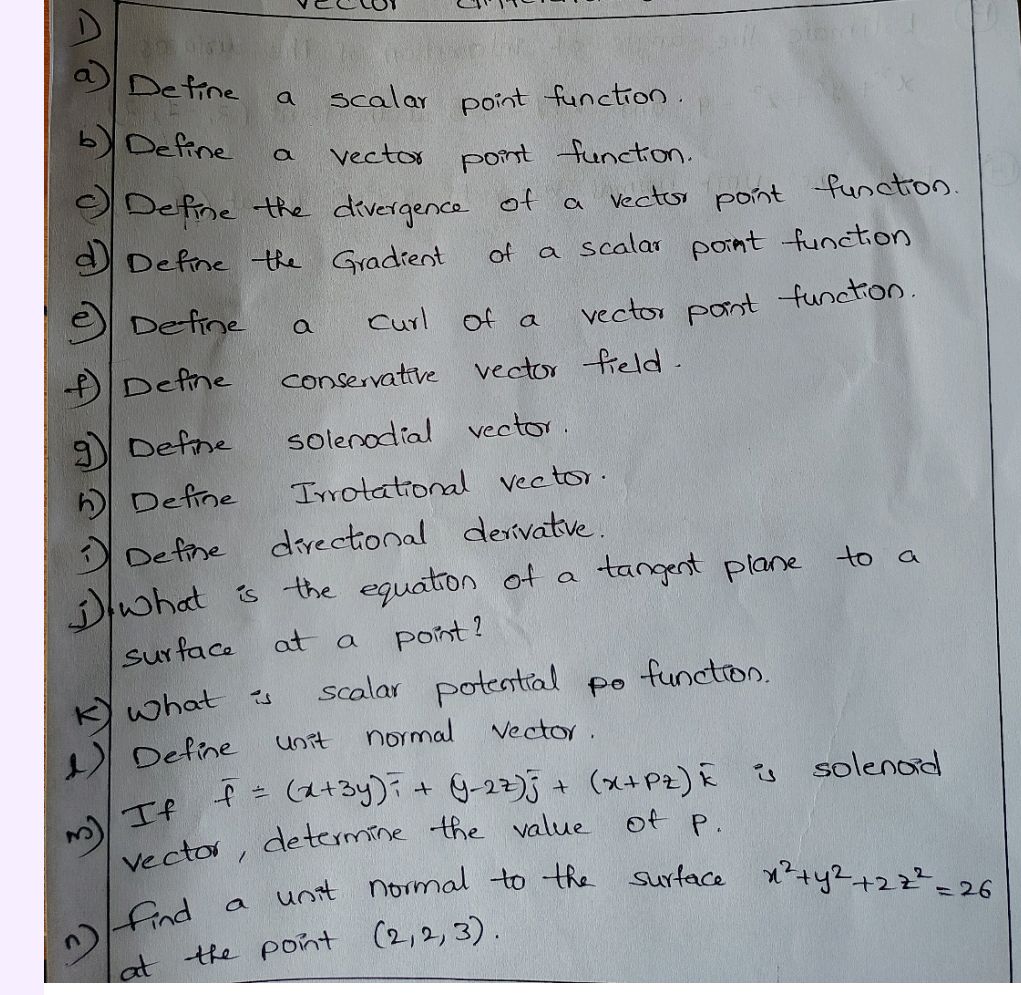 1)
a) Define a scalar point function.
b) Define a vector point function.
c) Define the divergence of a vector point function.
d) Define the Gradient of a scalar point function
e) Define a curl of a vector point function.
f) Define conservative vector field.
g) Define solenodial vector.
h) Define Irrotational vector.
i) Define directional derivatve.
j) what is the equation of a tangent plane to a
surface at a point?
k) what is scalar potential po function.
l) Define unit normal vector.
m) If f̄ = (x+3y)ī + (y-2z)j̄ + (x+pz)k̄ is solenoid
vector, determine the value of p.
n) find a unit normal to the surface x²+y²+2z²=26
at the point (2,2,3).